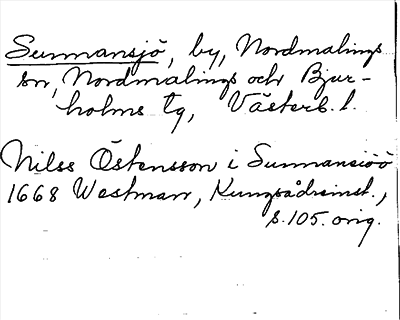 Sunnansjö, by, Nordmalings
sn, Nordmalings och Bjur-
holms tg, Västerb. l.
Nilss Östensson i Sunnansiöö
1668 Westman, Kungsådreinst.,
s. 105. orig.